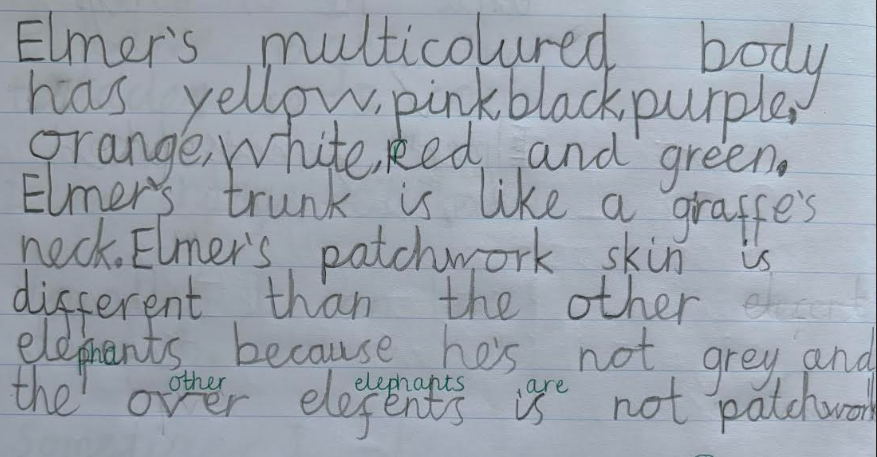 Elmer's multicolured body
has yellow, pink, black, purple,
orange, white, Red and green.
Elmer's trunk is like a giraffe's
neck. Elmer's patchwork skin is
different than the other
elephants because he's not grey and
other elephants are
the over elefents is not patchwork